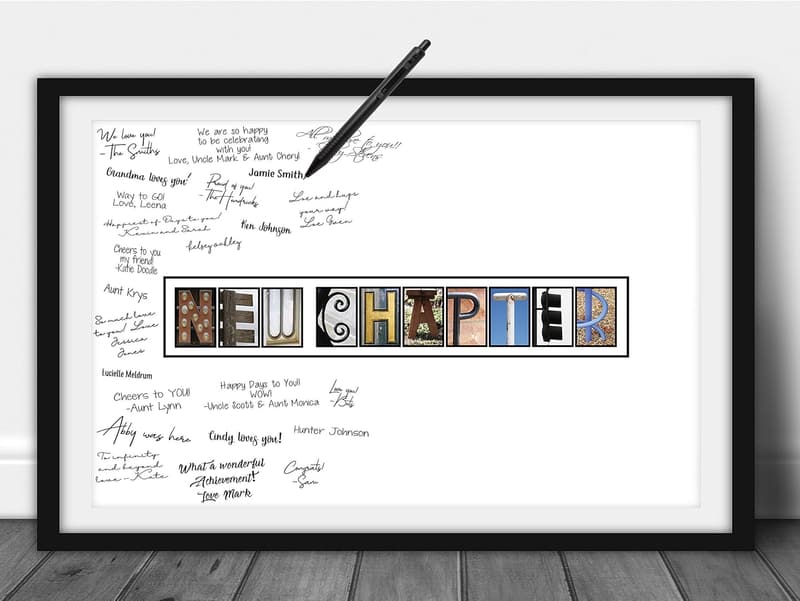 We love you!
-The Smiths
We are so happy
to be celebrating
with you!
Love, Uncle Mark & Aunt Cheryl
All my love to you!!
Grandma loves you!
Proud of you!
-The Hendricks
Jamie Smith
Way to GO!
Love, Leena
Love and hugs
your way!
Love Gwen
Happiest of Days to you!
Kevin and Sarah
Ken Johnson
kelsey oakley
Cheers to you
my friend!
-Katie Doodle
Aunt Krys
So much love
to you! Love
Jessica
Jones
NEW CHAPTER
Lucielle Meldrum
Cheers to YOU!
-Aunt Lynn
Happy Days to You!!
WOW!
-Uncle Scott & Aunt Monica
Love you!
Abby was here
Cindy loves you!
Hunter Johnson
To infinity
and beyond
love - Kate
What a wonderful
Achievement!
Love Mark
Congrats!
-Sam